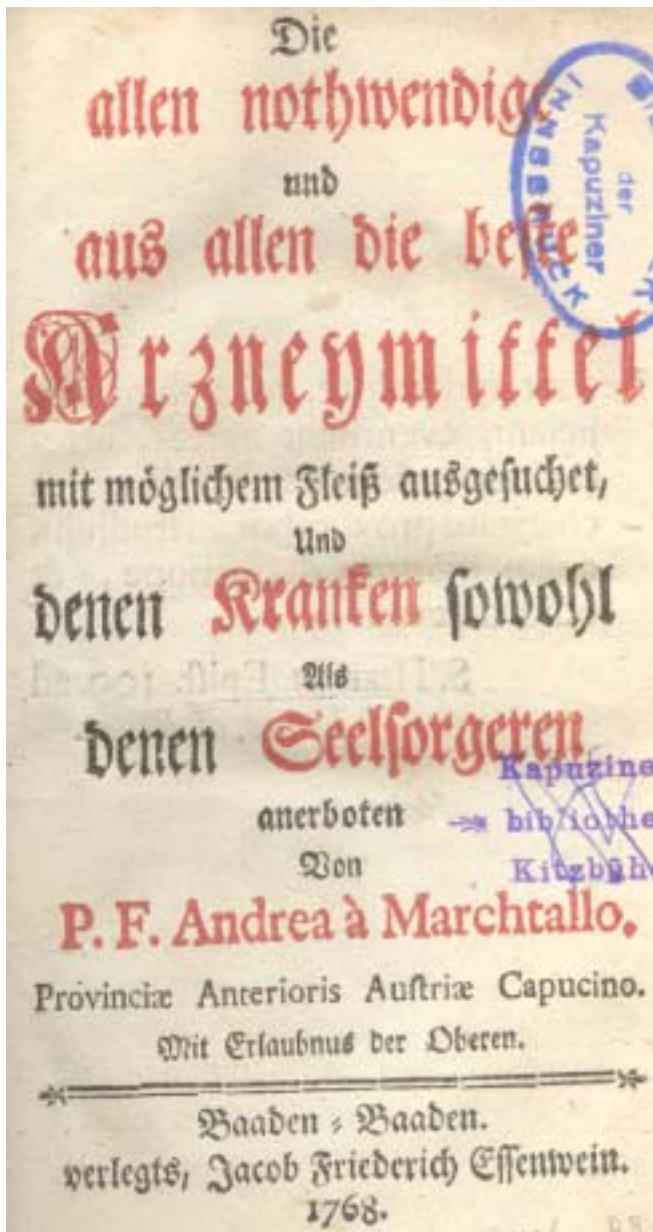 Die
allen nothwendige
und
aus allen die beste
Arzneymittel
mit möglichem Fleiß ausgesuchet,
Und
denen Kranken sowohl
Als
denen Seelsorgeren
anerboten
Von
P. F. Andrea à Marchtallo.
Provinciæ Anterioris Austriæ Capucino.
Mit Erlaubnus der Oberen.
Baaden = Baaden.
verlegts, Jacob Friederich Essenwein.
1768.
der
Kapuziner
INNSBRUCK
Kapuzine
bibliothe
Kitzbühe